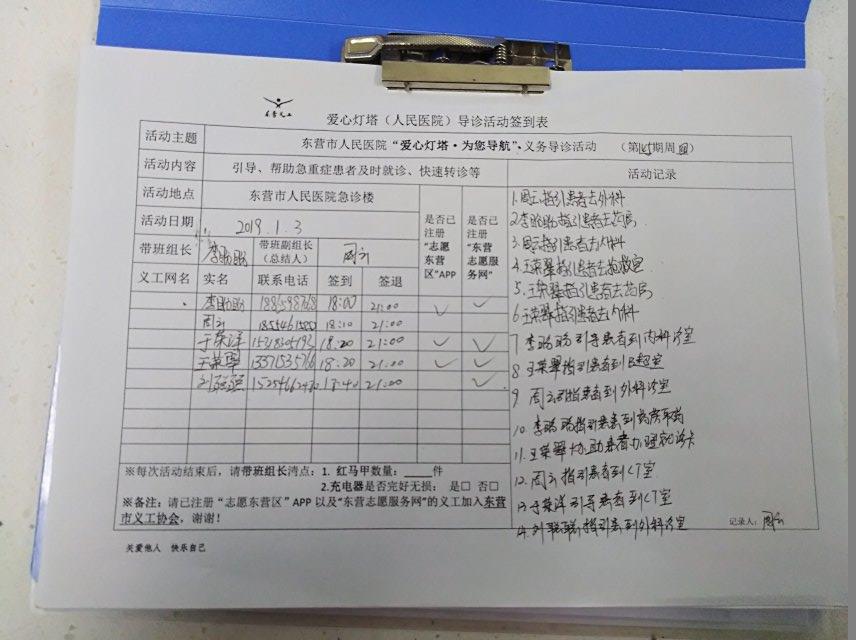 东营义工
爱心灯塔（人民医院）导诊活动签到表
活动主题 东营市人民医院“爱心灯塔·为您导航”、义务导诊活动 （第 期周四）
活动内容 引导、帮助急重症患者及时就诊、快速转诊等 活动记录
活动地点 东营市人民医院急诊楼 是否已注册“志愿东营区”APP 是否已注册“东营志愿服务网”
活动日期 2019.1.3
带班组长 李盼盼 带班副组长（总结人） 周云
义工网名 实名 联系电话 签到 签退
李盼盼 18:00 21:00 ✓ ✓
周云 18:10 21:00
于荣洋 18:20 21:00 ✓ ✓
王荣翠 18:20 21:00 ✓ ✓
21:00 ✓
※每次活动结束后，请带班组长清点：1. 红马甲数量：____件
2.充电器是否完好无损： 是□ 否□
※备注：请已注册“志愿东营区”APP 以及“东营志愿服务网”的义工加入东营市义工协会，谢谢！
1.周云指引患者去外科
2.李盼盼指引患者去药房
3.周云指引患者去内科
4.王荣翠指引患者去抢救室
5.王荣翠指引患者去药房
6.王荣翠指引患者去内科
7 李盼盼引导患者到内科诊室
8 王荣翠指引患者到B超室
9 周云指引患者到外科诊室
10 李盼盼指引患者到药房取药
11.王荣翠协助患者办理就诊卡
12.周云指引患者到CT室
13.于荣洋引导患者到CT室
14. 指引患者到外科诊室
记录人：周云
关爱他人 快乐自己